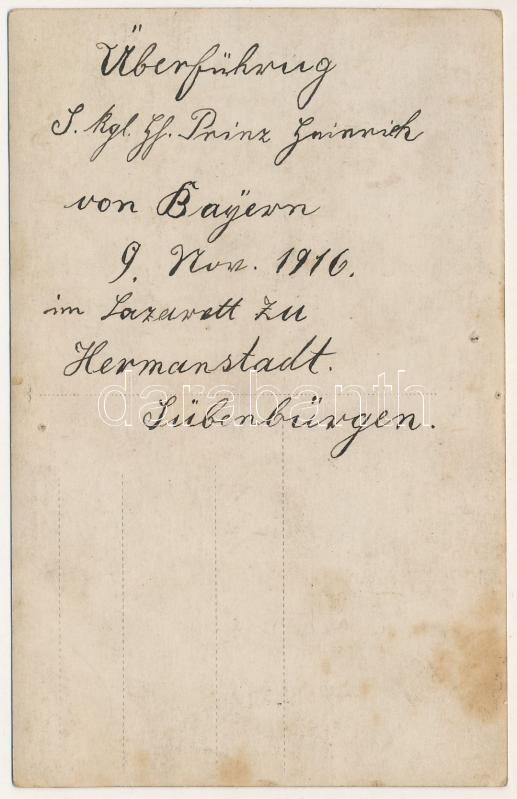 Überführug
S. kgl. Hh. Prinz Heinrich
von Bayern
9. Nov. 1916.
im Lazarett zu
Hermanstadt.
darabanth
Sübenbürgen.